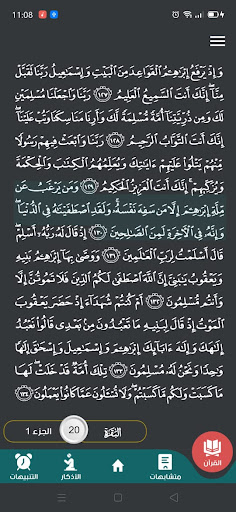 11:08
وَإِذْ يَرْفَعُ إِبْرَٰهِـۧمُ ٱلْقَوَاعِدَ مِنَ ٱلْبَيْتِ وَإِسْمَـٰعِيلُ رَبَّنَا تَقَبَّلْ
مِنَّآ إِنَّكَ أَنتَ ٱلسَّمِيعُ ٱلْعَلِيمُ ١٢٧ رَبَّنَا وَٱجْعَلْنَا مُسْلِمَيْنِ
لَكَ وَمِن ذُرِّيَّتِنَآ أُمَّةً مُّسْلِمَةً لَّكَ وَأَرِنَا مَنَاسِكَنَا وَتُبْ عَلَيْنَآ
إِنَّكَ أَنتَ ٱلتَّوَّابُ ٱلرَّحِيمُ ١٢٨ رَبَّنَا وَٱبْعَثْ فِيهِمْ رَسُولًا
مِّنْهُمْ يَتْلُوا۟ عَلَيْهِمْ ءَايَـٰتِكَ وَيُعَلِّمُهُمُ ٱلْكِتَـٰبَ وَٱلْحِكْمَةَ
وَيُزَكِّيهِمْ إِنَّكَ أَنتَ ٱلْعَزِيزُ ٱلْحَكِيمُ ١٢٩ وَمَن يَرْغَبُ عَن
مِّلَّةِ إِبْرَٰهِـۧمَ إِلَّا مَن سَفِهَ نَفْسَهُۥ وَلَقَدِ ٱصْطَفَيْنَـٰهُ فِى ٱلدُّنْيَا
وَإِنَّهُۥ فِى ٱلْـَٔاخِرَةِ لَمِنَ ٱلصَّـٰلِحِينَ ١٣٠ إِذْ قَالَ لَهُۥ رَبُّهُۥٓ أَسْلِمْ
قَالَ أَسْلَمْتُ لِرَبِّ ٱلْعَـٰلَمِينَ ١٣١ وَوَصَّىٰ بِهَآ إِبْرَٰهِـۧمُ بَنِيهِ
وَيَعْقُوبُ يَـٰبَنِىَّ إِنَّ ٱللَّهَ ٱصْطَفَىٰ لَكُمُ ٱلدِّينَ فَلَا تَمُوتُنَّ إِلَّا
وَأَنتُم مُّسْلِمُونَ ١٣٢ أَمْ كُنتُمْ شُهَدَآءَ إِذْ حَضَرَ يَعْقُوبَ
ٱلْمَوْتُ إِذْ قَالَ لِبَنِيهِ مَا تَعْبُدُونَ مِنۢ بَعْدِى قَالُوا۟ نَعْبُدُ
إِلَـٰهَكَ وَإِلَـٰهَ ءَابَآئِكَ إِبْرَٰهِـۧمَ وَإِسْمَـٰعِيلَ وَإِسْحَـٰقَ إِلَـٰهًا
وَٰحِدًا وَنَحْنُ لَهُۥ مُسْلِمُونَ ١٣٣ تِلْكَ أُمَّةٌ قَدْ خَلَتْ لَهَا
مَا كَسَبَتْ وَلَكُم مَّا كَسَبْتُمْ وَلَا تُسْـَٔلُونَ عَمَّا كَانُوا۟ يَعْمَلُونَ ١٣٤
البقرة 20 الجزء 1
القرآن متشابهات الأذكار التنبيهات